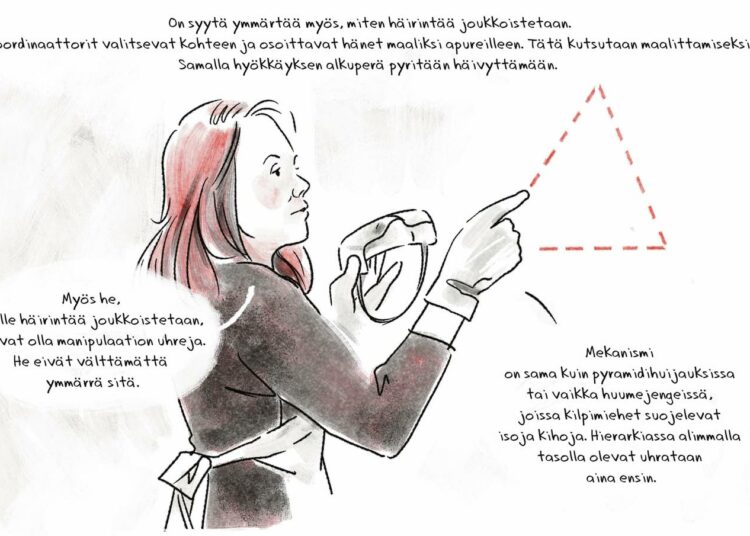 On syytä ymmärtää myös, miten häirintää joukkoistetaan.
oordinaattorit valitsevat kohteen ja osoittavat hänet maaliksi apureilleen. Tätä kutsutaan maalittamiseksi
Samalla hyökkäyksen alkuperä pyritään häivyttämään.
Myös he,
lle häirintää joukkoistetaan,
vat olla manipulaation uhreja.
He eivät välttämättä
ymmärrä sitä.
Mekanismi
on sama kuin pyramidihuijauksissa
tai vaikka huumejengeissä,
joissa kilpimiehet suojelevat
isoja kihoja. Hierarkiassa alimmalla
tasolla olevat uhrataan
aina ensin.